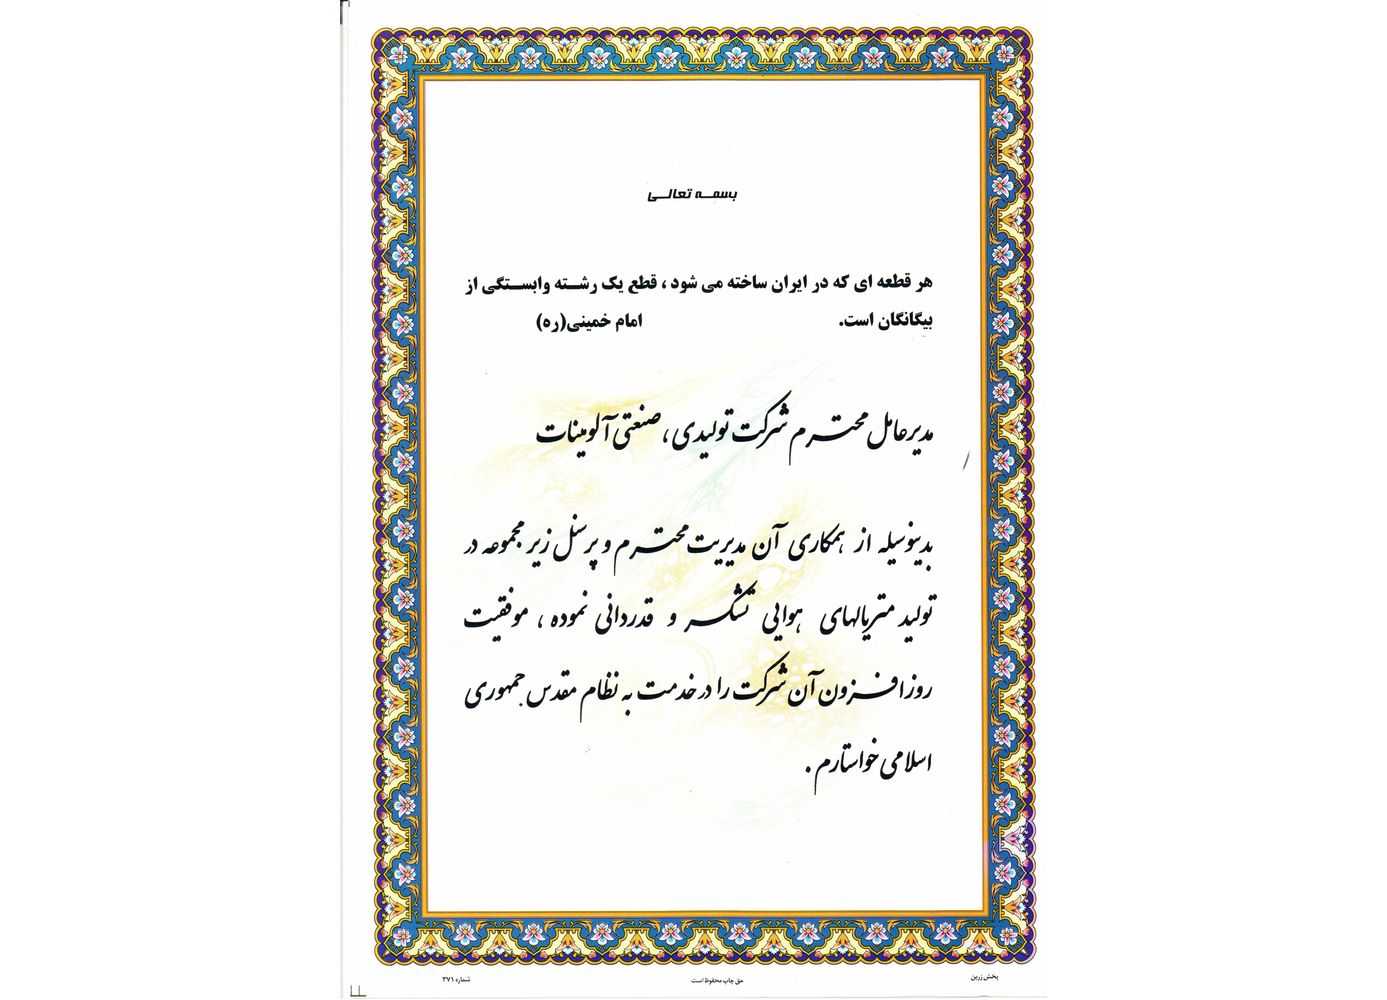 بسمه تعالی
هر قطعه ای که در ایران ساخته می شود ، قطع یک رشته وابستگی از
بیگانگان است. امام خمینی(ره)
مدیرعامل محترم شرکت تولیدی ، صنعتی آلومینات
بدینوسیله از همکاری آن مدیریت محترم و پرسنل زیر مجموعه در
تولید متریالهای هوایی تشکر و قدردانی نموده ، موفقیت
روزافزون آن شرکت را در خدمت به نظام مقدس جمهوری
اسلامی خواستارم .
پخش زرین حق چاپ محفوظ است شماره ۳۷۱